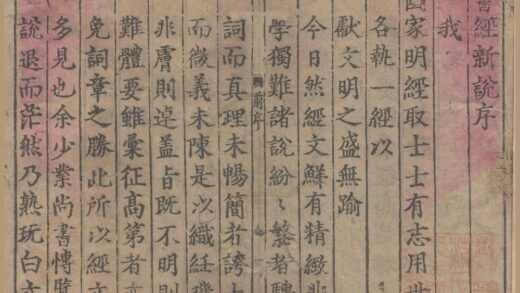 書經新說序
我
國家明經取士士有志用世
各執一經以
獻文明之盛無踰
今日然經文鮮有精緻非
學獨難諸說紛〻繁者騁
前序
詞而真理未暢簡者誇
而微義未陳是以織絍璣
非膚則遠蓋旨既不明則
難體要雖彙征高第者
免詞章之勝此所以經文
多見也余少業尚書博覽
說退而茫然乃熟玩白文